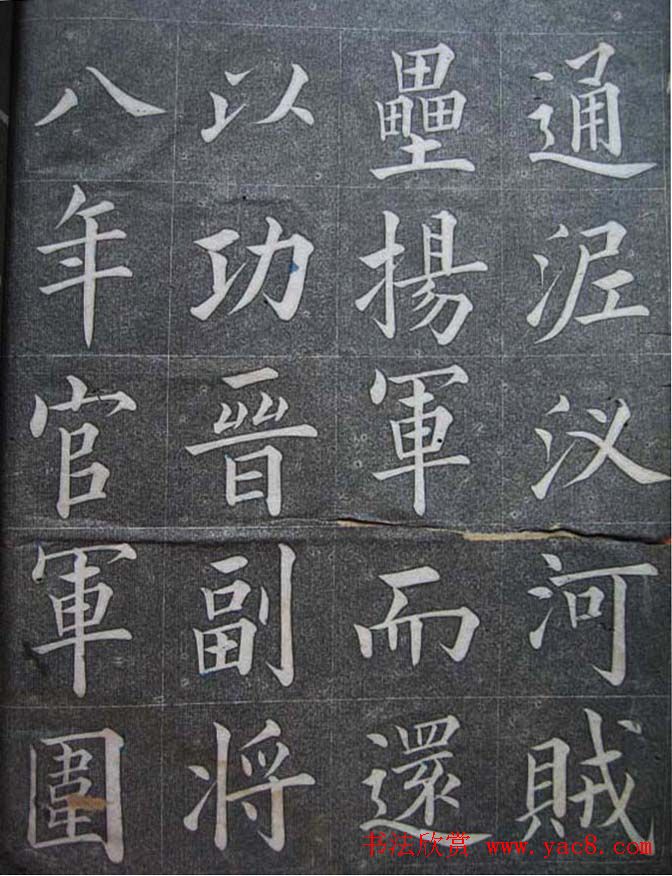 通泥汊河賊
壘揚軍而還
以功晉副将
八年官軍圍
书法欣赏 www.yac8.com